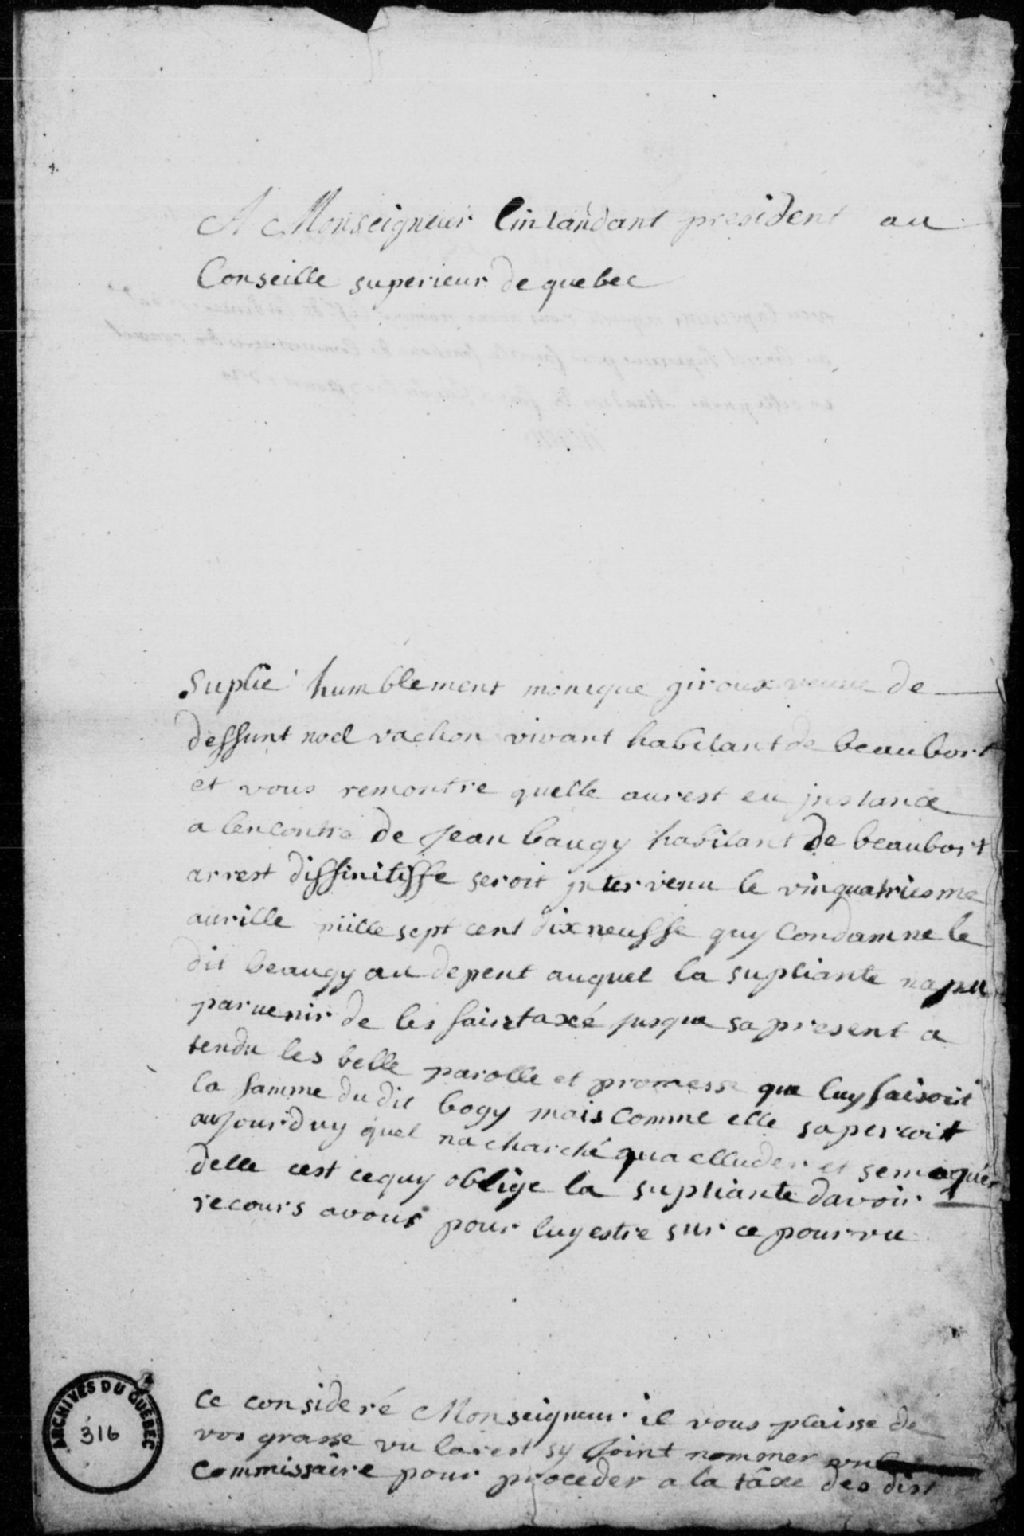 A Monseigneur Lintandant president au
Conseille superieur de quebec
Suplie humblement monique giroux veuve de
deffunt noel vachon vivant habitant de beaubort
et vous remontre quelle aurest eu jnstance
a lencontre de Jean baugy habitant de beaubort
arrest diffinitiffe seroit jntervenu le vinquatriesme
aurille mille sept cent dix neuffe quy Condamne le
dit beaugy au depent auquel la supliante na pu
parvenir de les faire taxé jusqua sa present a
tendu les belle parolle et promesse que luy faisoit
la famme du dit bogy mais comme elle saperroit
aujourduy quel na charché qua elluder et se moquér
delle cest ce quy oblige la supliante davoir
recours avous pour luy estre sur ce pourvu
Ce consideré Monseigneur il vous plaisse de
vos grasse vu larest sy Joint nommer un
Commissaire pour proceder a la taxe des dist
ARCHIVES DU QUÉBEC
316